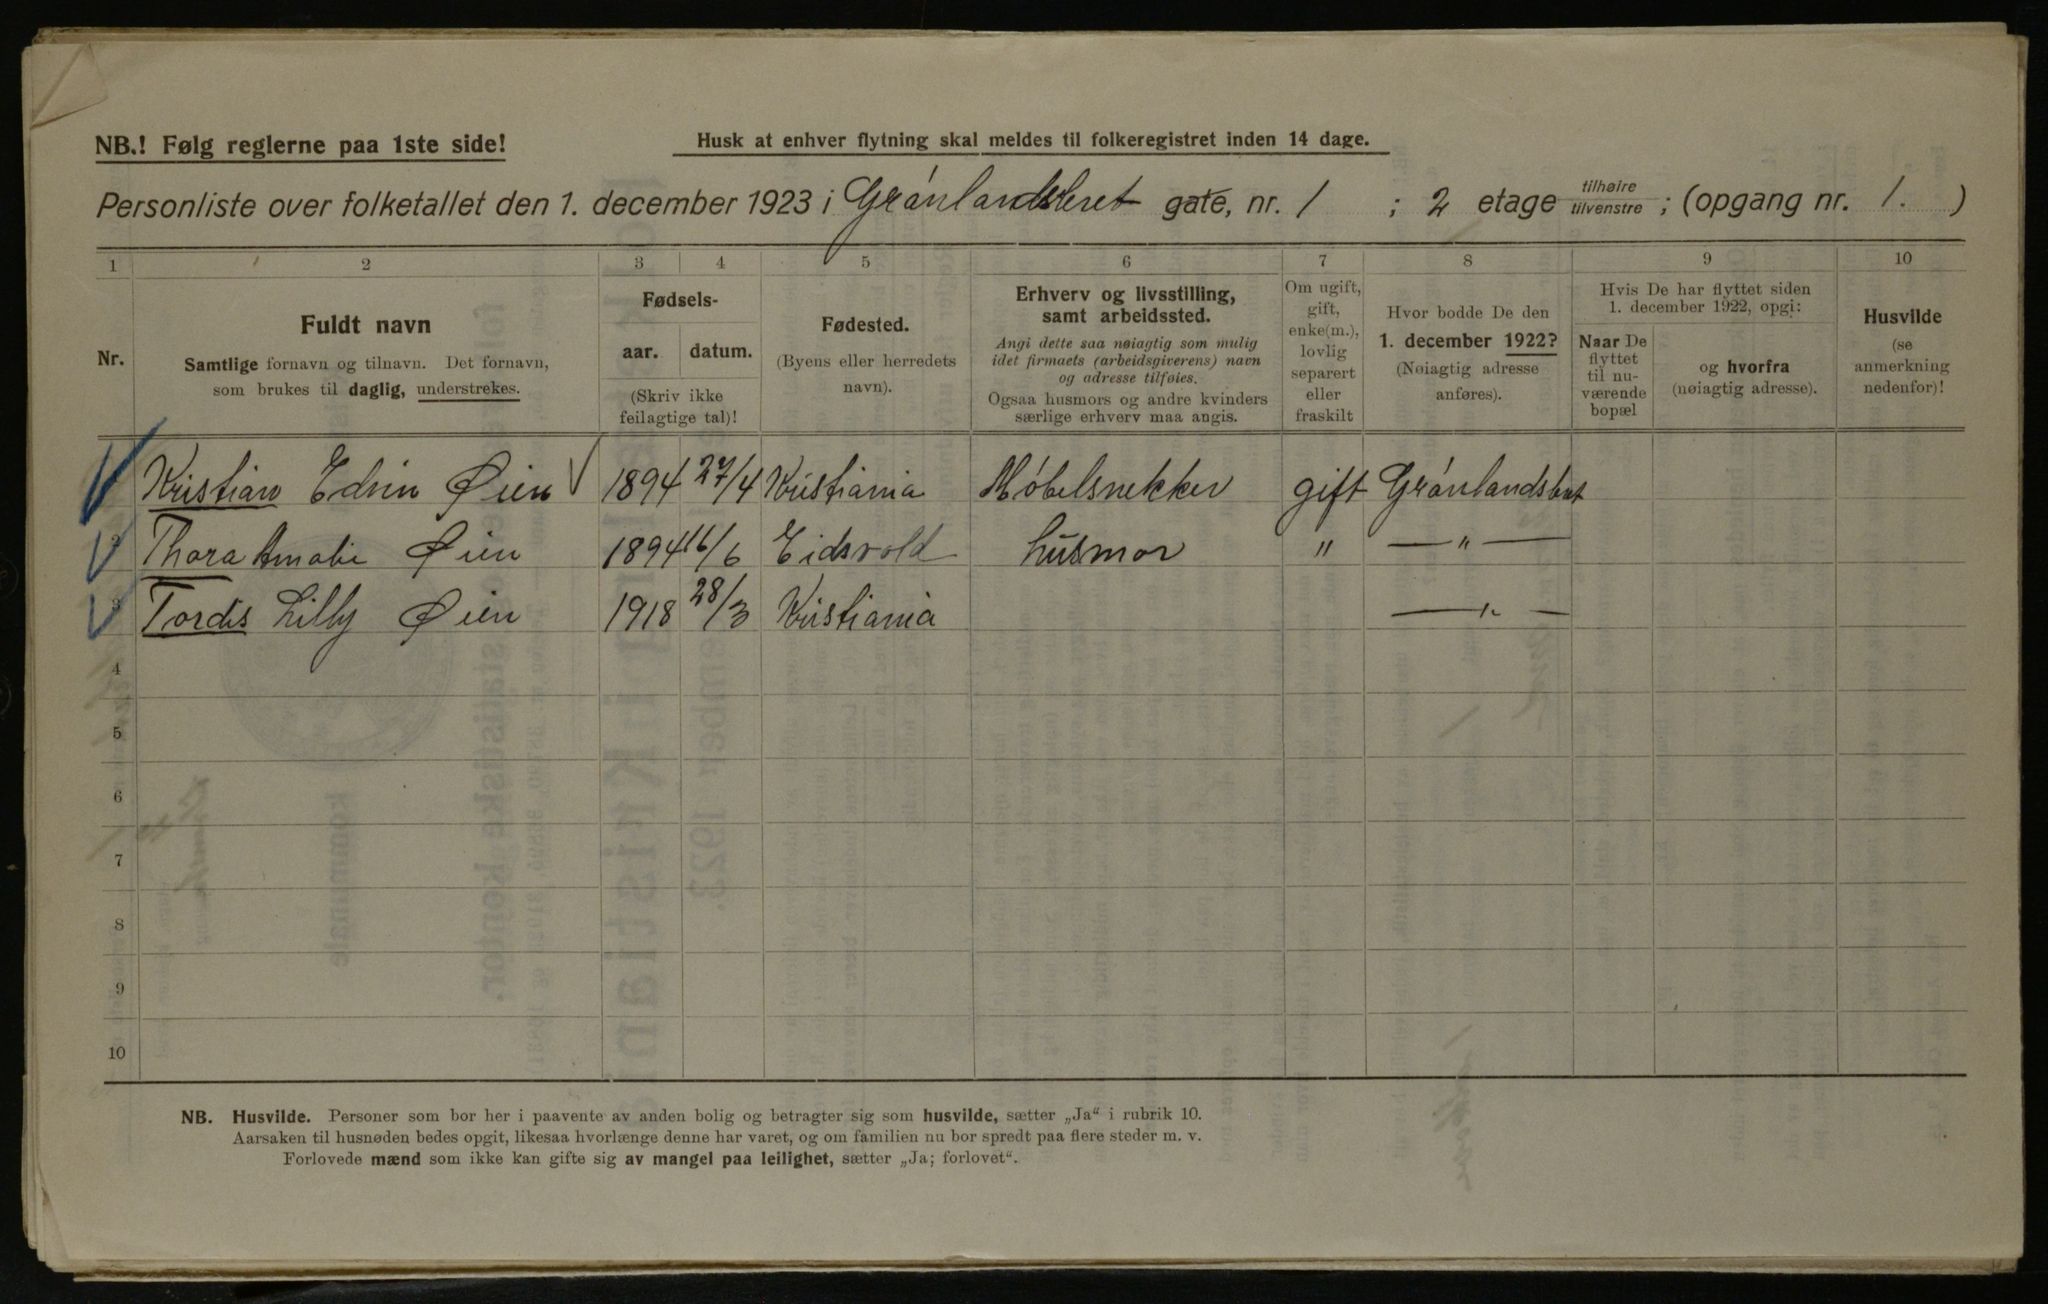 NB.! Følg reglerne paa 1ste side!
Husk at enhver flytning skal meldes til folkeregistret inden 14 dage.
Personliste over folketallet den 1. december 1923 i Grønlandsleret gate, nr. 1 ; 2 etage tilhøire tilvenstre ; (opgang nr. 1. )
1 2 3 4 5 6 7 8 9 10
Nr.
Fuldt navn
Samtlige fornavn og tilnavn. Det fornavn,
som brukes til daglig, understrekes.
Fødsels-
aar. datum.
(Skriv ikke
feilagtige tal)!
Fødested.
(Byens eller herredets
navn).
Erhverv og livsstilling,
samt arbeidssted.
Angi dette saa nøiagtig som mulig
idet firmaets (arbeidsgiverens) navn
og adresse tilføies.
Ogsaa husmors og andre kvinders
særlige erhverv maa angis.
Om ugift,
gift,
enke(m.),
lovlig
separert
eller
fraskilt
Hvor bodde De den
1. december 1922?
(Nøiagtig adresse
anføres).
Hvis De har flyttet siden
1. december 1922, opgi:
Naar De
flyttet
til nu-
værende
bopæl
og hvorfra
(nøiagtig adresse).
Husvilde
(se
anmerkning
nedenfor)!
Kristian Edvin Øien 1894 27/4 Kristiania Møbelsnekker gift Grønlandsleret
2 Thora Amalie Øien 1894 16/6 Eidsvold husmor " — " —
3 Tordis Lilly Øien 1918 28/3 Kristiania — " —
4
5
6
7
8
9
10
NB. Husvilde. Personer som bor her i paavente av anden bolig og betragter sig som husvilde, sætter „Ja“ i rubrik 10.
Aarsaken til husnøden bedes opgit, likesaa hvorlænge denne har varet, og om familien nu bor spredt paa flere steder m. v.
Forlovede mænd som ikke kan gifte sig av mangel paa leilighet, sætter „Ja; forlovet“.